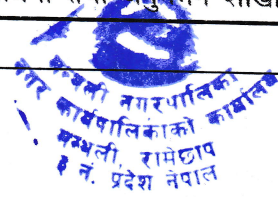 मन्थली नगरपालिका
नगर कार्यपालिकाको कार्यालय
मन्थली, रामेछाप
३ नं. प्रदेश नेपाल